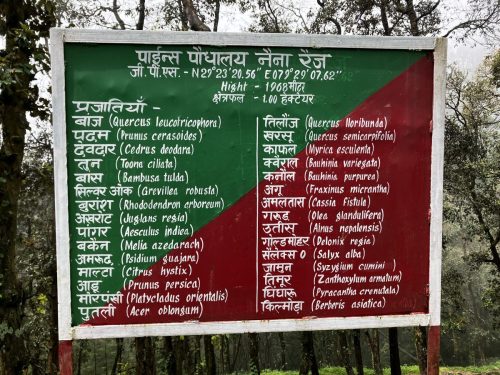 पाईन्स पौधालय नैना रैंज
जी.पी.एस.- N29°23'20.56" E079°29'07.62"
Hight - 1908 मीटर
क्षेत्रफल - 1.00 हैक्टेयर
प्रजातियाँ-
बांज (Quercus leucotricophora)
पदम (Prunus cerasoides)
देवदार (Cedrus deodara)
तुन (Toona ciliata)
बांस (Bambusa tulda)
सिल्वर ओक (Grevillea robusta)
बुरांश (Rhododendron arboreum)
अखरोट (Juglans regia)
पांगर (Aesculus indica)
बकैन (Melia azedarach)
अमरूद (Psidium guajara)
माल्टा (Citrus hystix)
आडू (Prunus persica)
मोरपंखी (Platycladus orientalis)
पुतली (Acer oblongum)
तिलौंज (Quercus floribunda)
खरसू (Quercus semicarpifolia)
काफल (Myrica esculenta)
क्वैराल (Bauhinia variegata)
कनौल (Bauhinia purpurea)
अंगू (Fraxinus micrantha)
अमलतास (Cassia fistula)
गरूड़ (Olea glandulifera)
उतीस (Alnus nepalensis)
गोल्डमोहर (Delonix regia)
सैलेक्स O (Salyx alba)
जामुन (Syzygium cumini)
तिमूर (Zanthoxylum armatum)
घिंघारू (Pyracantha crenulata)
किल्मोड़ा (Berberis asiatica)